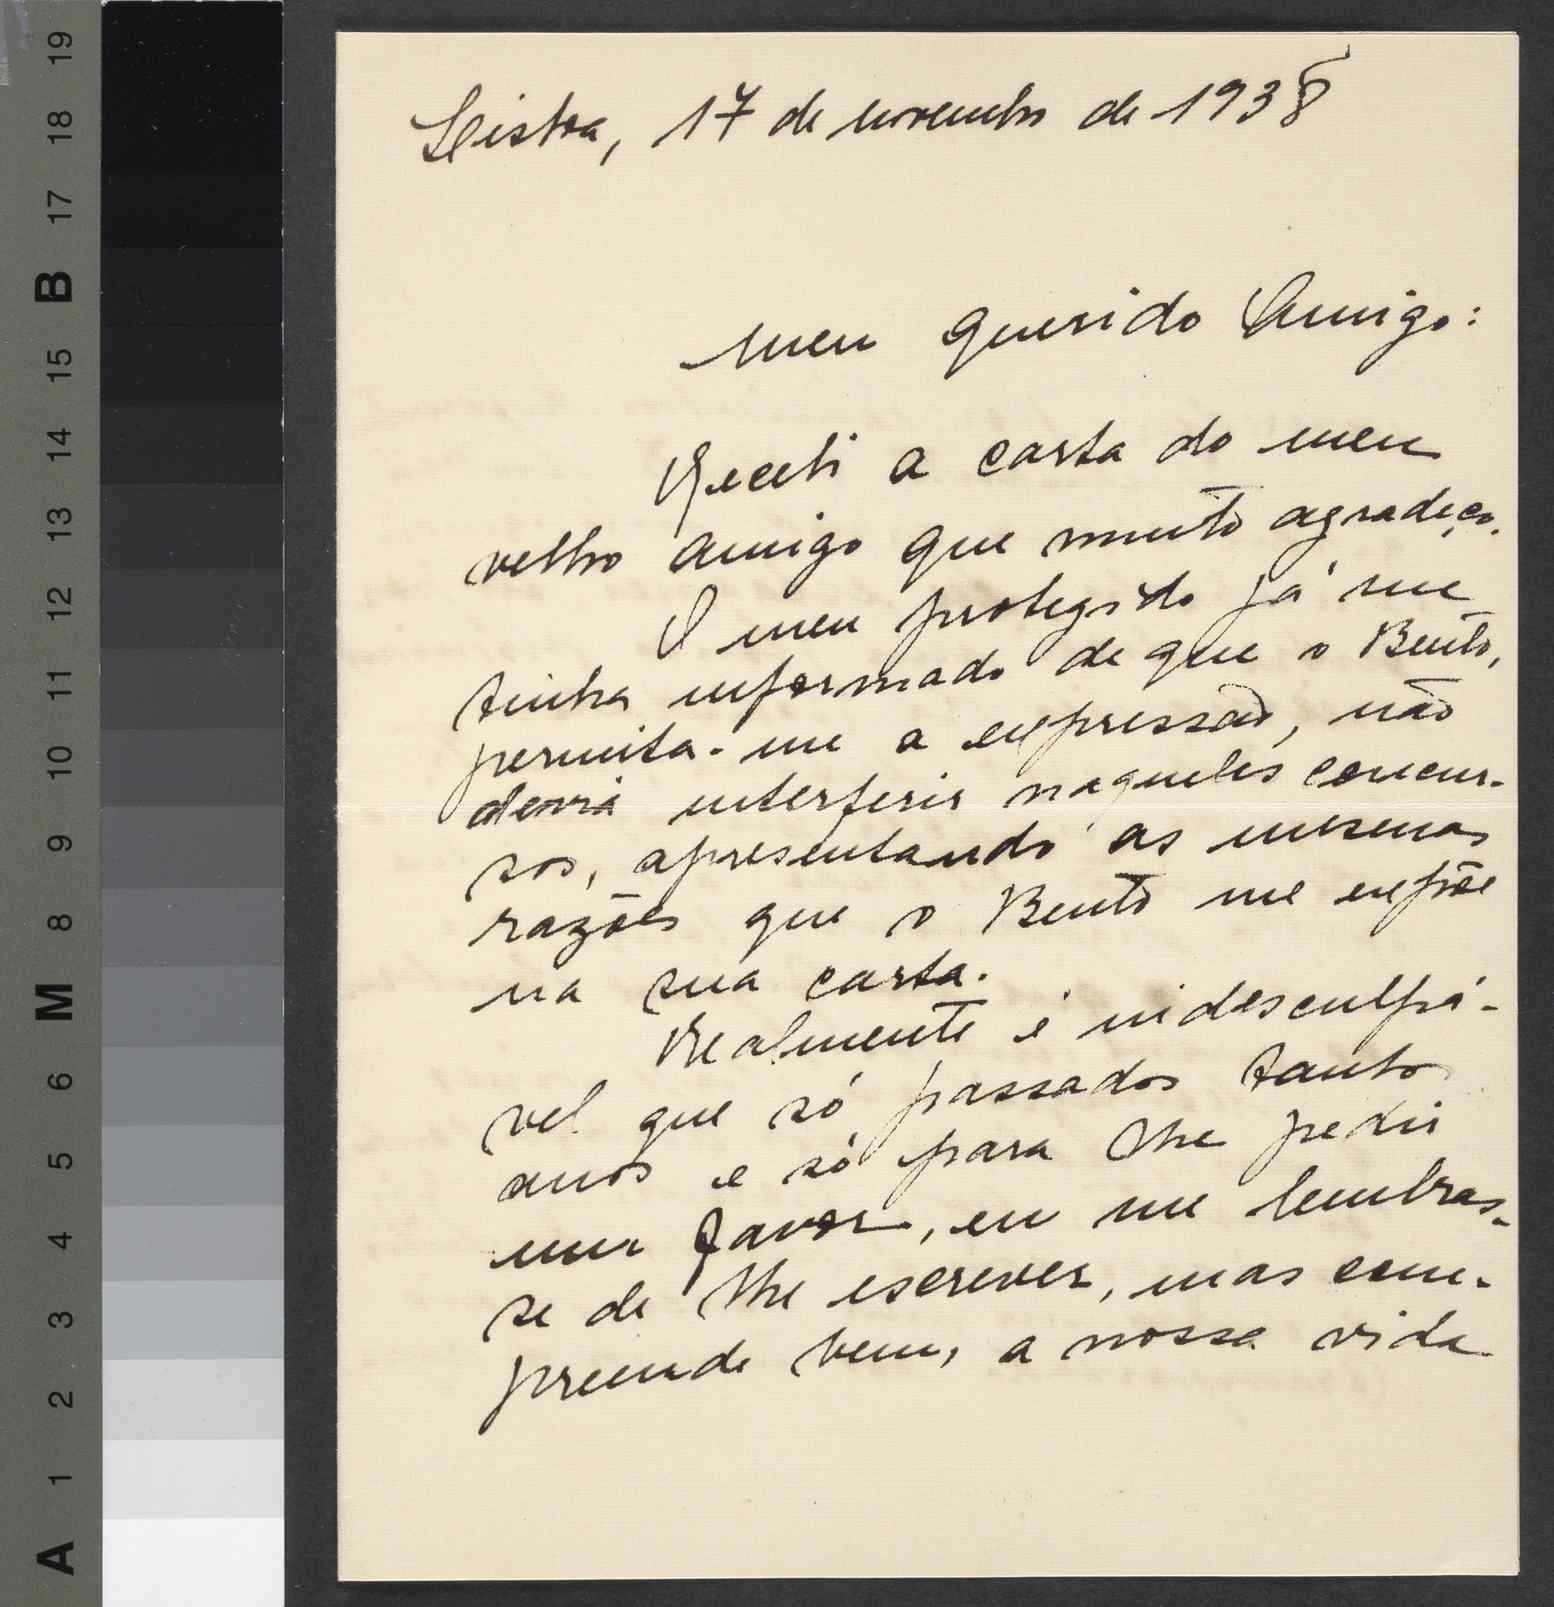 19
18
17
B
15
14
13
12
11
10
9
8
M
6
5
4
3
2
1
A
Lisboa, 17 de novembro de 1938
Meu querido Amigo:
Recebi a carta do meu
velho amigo que muito agradeço.
O meu protegido já me
tinha informado de que o Bento,
permita-me a expressão, não
devia interferir naqueles concur-
sos, apresentando as mesmas
razões que o Bento me expõe
na sua carta.
Realmente é indesculpá-
vel que só passados tantos
anos e só para lhe pedir
um favor, eu me lembras-
se de lhe escrever, mas com-
preende bem, a nossa vida